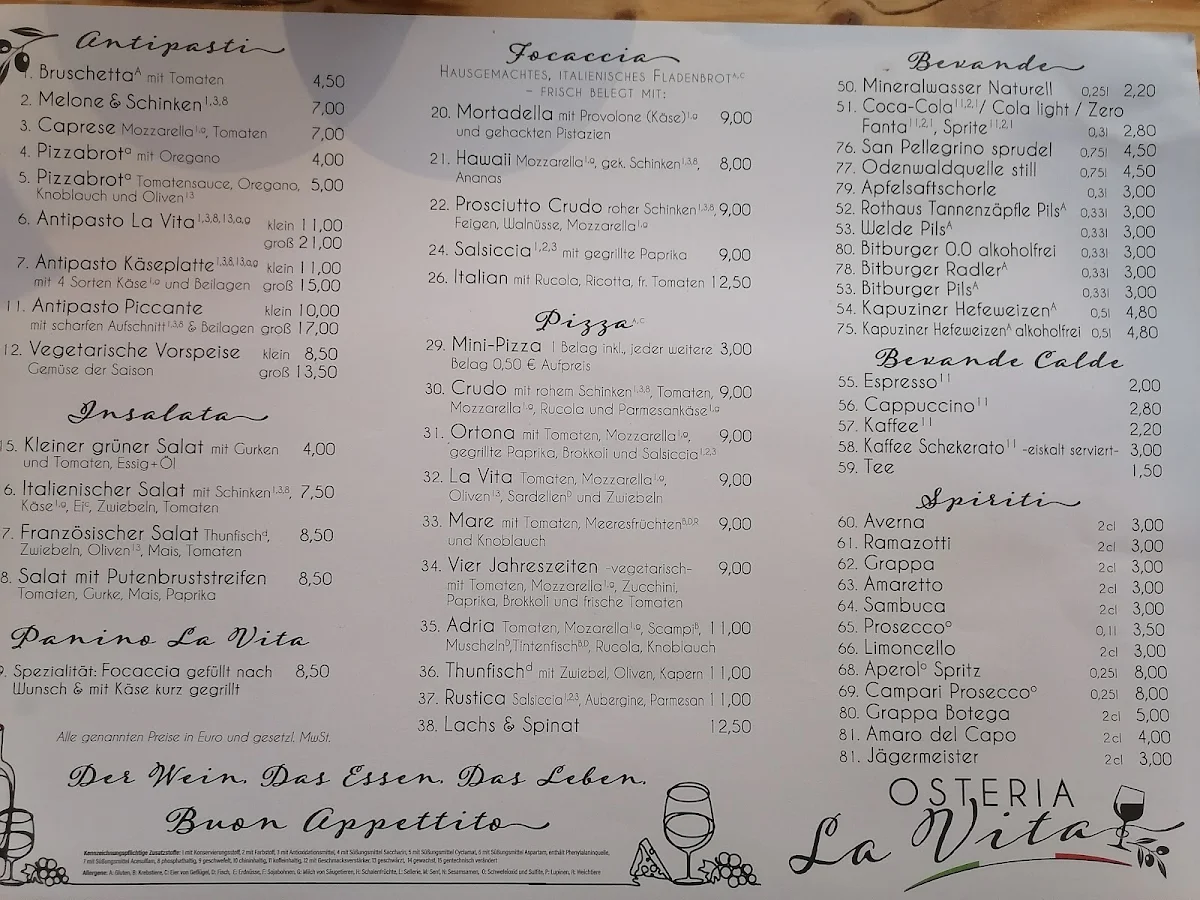 Antipasti
1. Bruschetta^A mit Tomaten 4,50
2. Melone & Schinken^1,3,8 7,00
3. Caprese Mozzarella^1,g, Tomaten 7,00
4. Pizzabrot^a mit Oregano 4,00
5. Pizzabrot^a Tomatensauce, Oregano, 5,00
Knoblauch und Oliven^13
6. Antipasto La Vita^1,3,8,13,a,g klein 11,00
groß 21,00
7. Antipasto Käseplatte^1,3,8,13,a,g klein 11,00
mit 4 Sorten Käse^1,g und Beilagen groß 15,00
11. Antipasto Piccante klein 10,00
mit scharfen Aufschnitt^1,3,8 & Beilagen groß 17,00
12. Vegetarische Vorspeise klein 8,50
Gemüse der Saison groß 13,50
Insalata
15. Kleiner grüner Salat mit Gurken 4,00
und Tomaten, Essig+Öl
6. Italienischer Salat mit Schinken^1,3,8, 7,50
Käse^1,g, Ei^c, Zwiebeln, Tomaten
7. Französischer Salat Thunfisch^d, 8,50
Zwiebeln, Oliven^13, Mais, Tomaten
8. Salat mit Putenbruststreifen 8,50
Tomaten, Gurke, Mais, Paprika
Panino La Vita
9. Spezialität: Focaccia gefüllt nach 8,50
Wunsch & mit Käse kurz gegrillt
Alle genannten Preise in Euro und gesetzl. MwSt.
Focaccia
Hausgemachtes, italienisches Fladenbrot^A,C
– frisch belegt mit:
20. Mortadella mit Provolone (Käse)^1,g 9,00
und gehackten Pistazien
21. Hawaii Mozzarella^1,g, gek. Schinken^1,3,8, 8,00
Ananas
22. Prosciutto Crudo roher Schinken^1,3,8, 9,00
Feigen, Walnüsse, Mozzarella^1,g
24. Salsiccia^1,2,3 mit gegrillte Paprika 9,00
26. Italian mit Rucola, Ricotta, fr. Tomaten 12,50
Pizza^A,C
29. Mini-Pizza 1 Belag inkl., jeder weitere 3,00
Belag 0,50 € Aufpreis
30. Crudo mit rohem Schinken^1,3,8, Tomaten, 9,00
Mozzarella^1,g, Rucola und Parmesankäse^1,g
31. Ortona mit Tomaten, Mozzarella^1,g, 9,00
gegrillte Paprika, Brokkoli und Salsiccia^1,2,3
32. La Vita Tomaten, Mozzarella^1,g, 9,00
Oliven^13, Sardellen^D und Zwiebeln
33. Mare mit Tomaten, Meeresfrüchten^B,D,R 9,00
und Knoblauch
34. Vier Jahreszeiten -vegetarisch- 9,00
mit Tomaten, Mozzarella^1,g, Zucchini,
Paprika, Brokkoli und frische Tomaten
35. Adria Tomaten, Mozarella^1,g, Scampi^B, 11,00
Muscheln^D,Tintenfisch^B,D, Rucola, Knoblauch
36. Thunfisch^d mit Zwiebel, Oliven, Kapern 11,00
37. Rustica Salsiccia^1,2,3, Aubergine, Parmesan 11,00
38. Lachs & Spinat 12,50
Bevande
50. Mineralwasser Naturell 0,25l 2,20
51. Coca-Cola^11,2,1 / Cola light / Zero
Fanta^11,2,1, Sprite^11,2,1 0,3l 2,80
76. San Pellegrino sprudel 0,75l 4,50
77. Odenwaldquelle still 0,75l 4,50
79. Apfelsaftschorle 0,3l 3,00
52. Rothaus Tannenzäpfle Pils^A 0,33l 3,00
53. Welde Pils^A 0,33l 3,00
80. Bitburger 0.0 alkoholfrei 0,33l 3,00
78. Bitburger Radler^A 0,33l 3,00
53. Bitburger Pils^A 0,33l 3,00
54. Kapuziner Hefeweizen^A 0,5l 4,80
75. Kapuziner Hefeweizen^A alkoholfrei 0,5l 4,80
Bevande Calde
55. Espresso^11 2,00
56. Cappuccino^11 2,80
57. Kaffee^11 2,20
58. Kaffee Schekerato^11 -eiskalt serviert- 3,00
59. Tee 1,50
Spiriti
60. Averna 2cl 3,00
61. Ramazotti 2cl 3,00
62. Grappa 2cl 3,00
63. Amaretto 2cl 3,00
64. Sambuca 2cl 3,00
65. Prosecco^o 0,1l 3,50
66. Limoncello 2cl 3,00
68. Aperol^o Spritz 0,25l 8,00
69. Campari Prosecco^o 0,25l 8,00
80. Grappa Botega 2cl 5,00
81. Amaro del Capo 2cl 4,00
81. Jägermeister 2cl 3,00
Der Wein. Das Essen. Das Leben.
Buon Appettito
Kennzeichnungspflichtige Zusatzstoffe: 1 mit Konservierungsstoff, 2 mit Farbstoff, 3 mit Antioxidationsmittel, 4 mit Süßungsmittel Saccharin, 5 mit Süßungsmittel Cyclamat, 6 mit Süßungsmittel Aspartam, enthält Phenylalaninquelle,
7 mit Süßungsmittel Acesulfam, 8 phosphathaltig, 9 geschwefelt, 10 chininhaltig, 11 koffeinhaltig, 12 mit Geschmacksverstärker, 13 geschwärzt, 14 gewachst, 15 gentechnisch verändert
Allergene: A: Gluten, B: Krebstiere, C: Eier von Geflügel, D: Fisch, E: Erdnüsse, F: Sojabohnen, G: Milch von Säugetieren, H: Schalenfrüchte, L: Sellerie, M: Senf, N: Sesamsamen, O: Schwefeloxid und Sulfite, P: Lupinen, R: Weichtiere
OSTERIA
La Vita